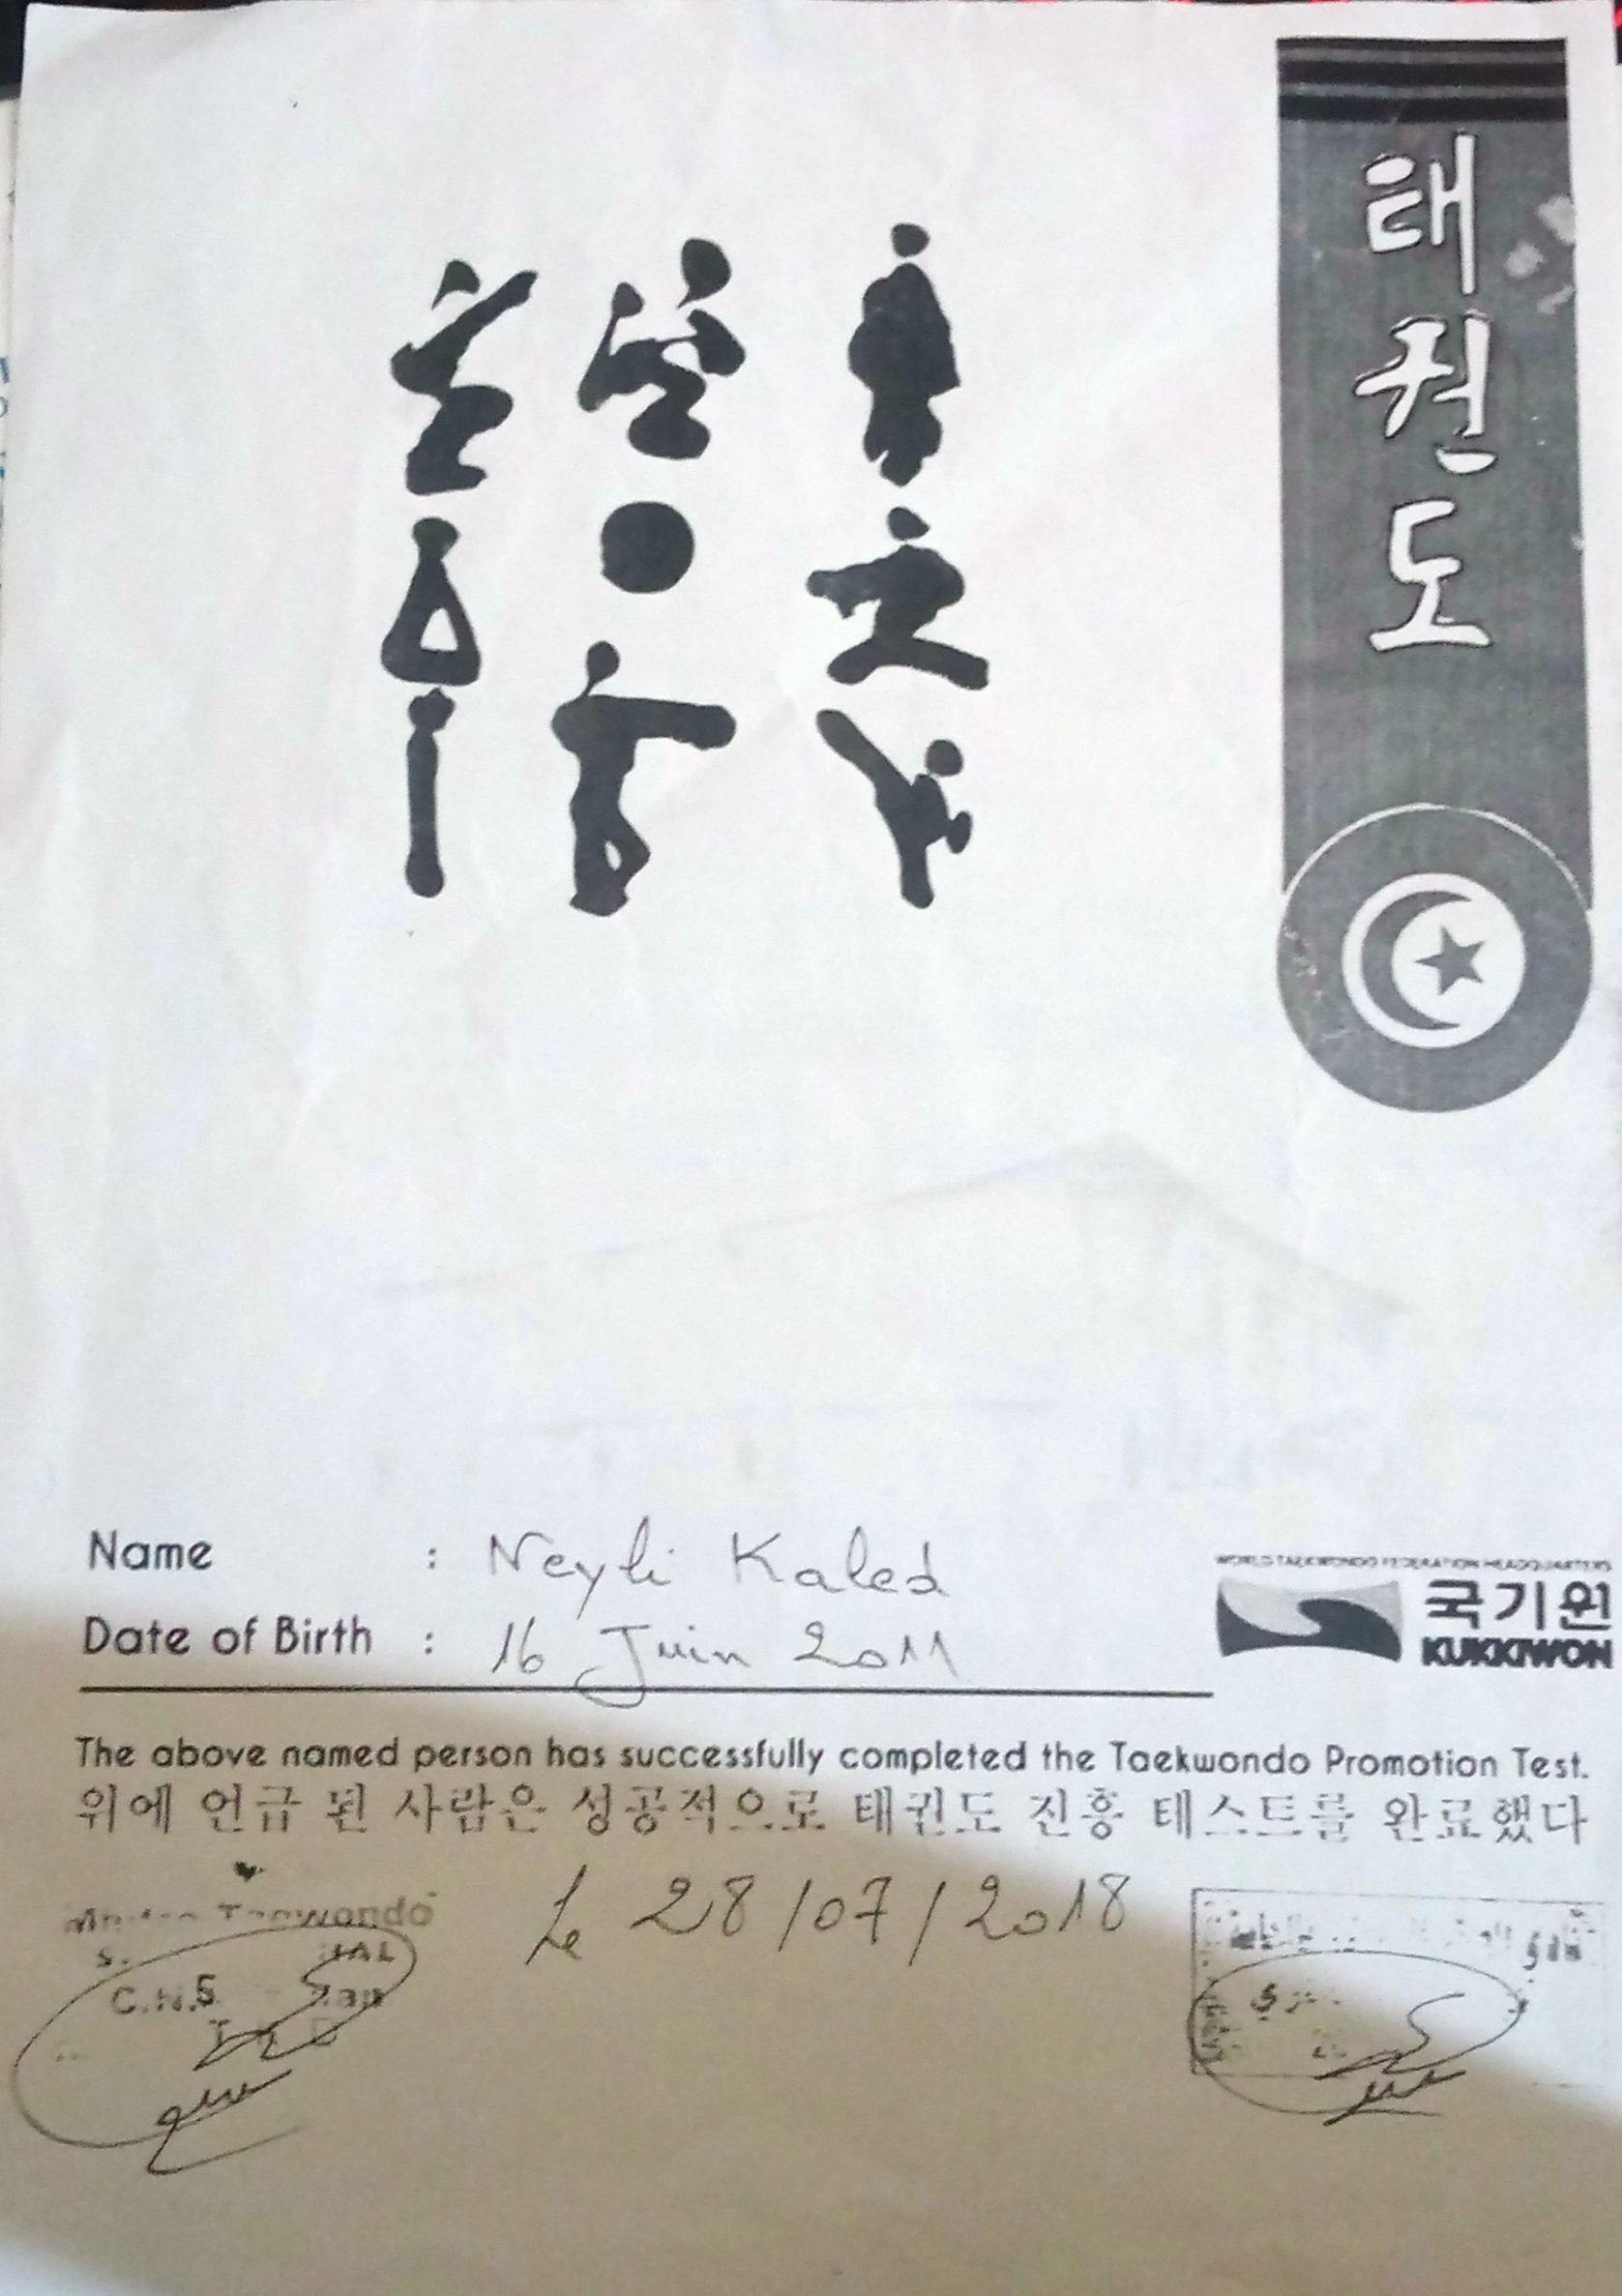 태권도
Name : Neyli Kaled
WORLD TAEKWONDO FEDERATION HEADQUARTERS
국기원
KUKKIWON
Date of Birth : 16 Juin 2011
The above named person has successfully completed the Taekwondo Promotion Test.
위에 언급 된 사람은 성공적으로 태권도 진흥 테스트를 완료했다
Le 28/07/2018